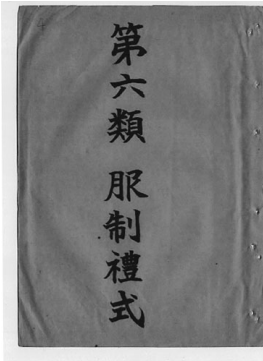 第六類 服制禮式